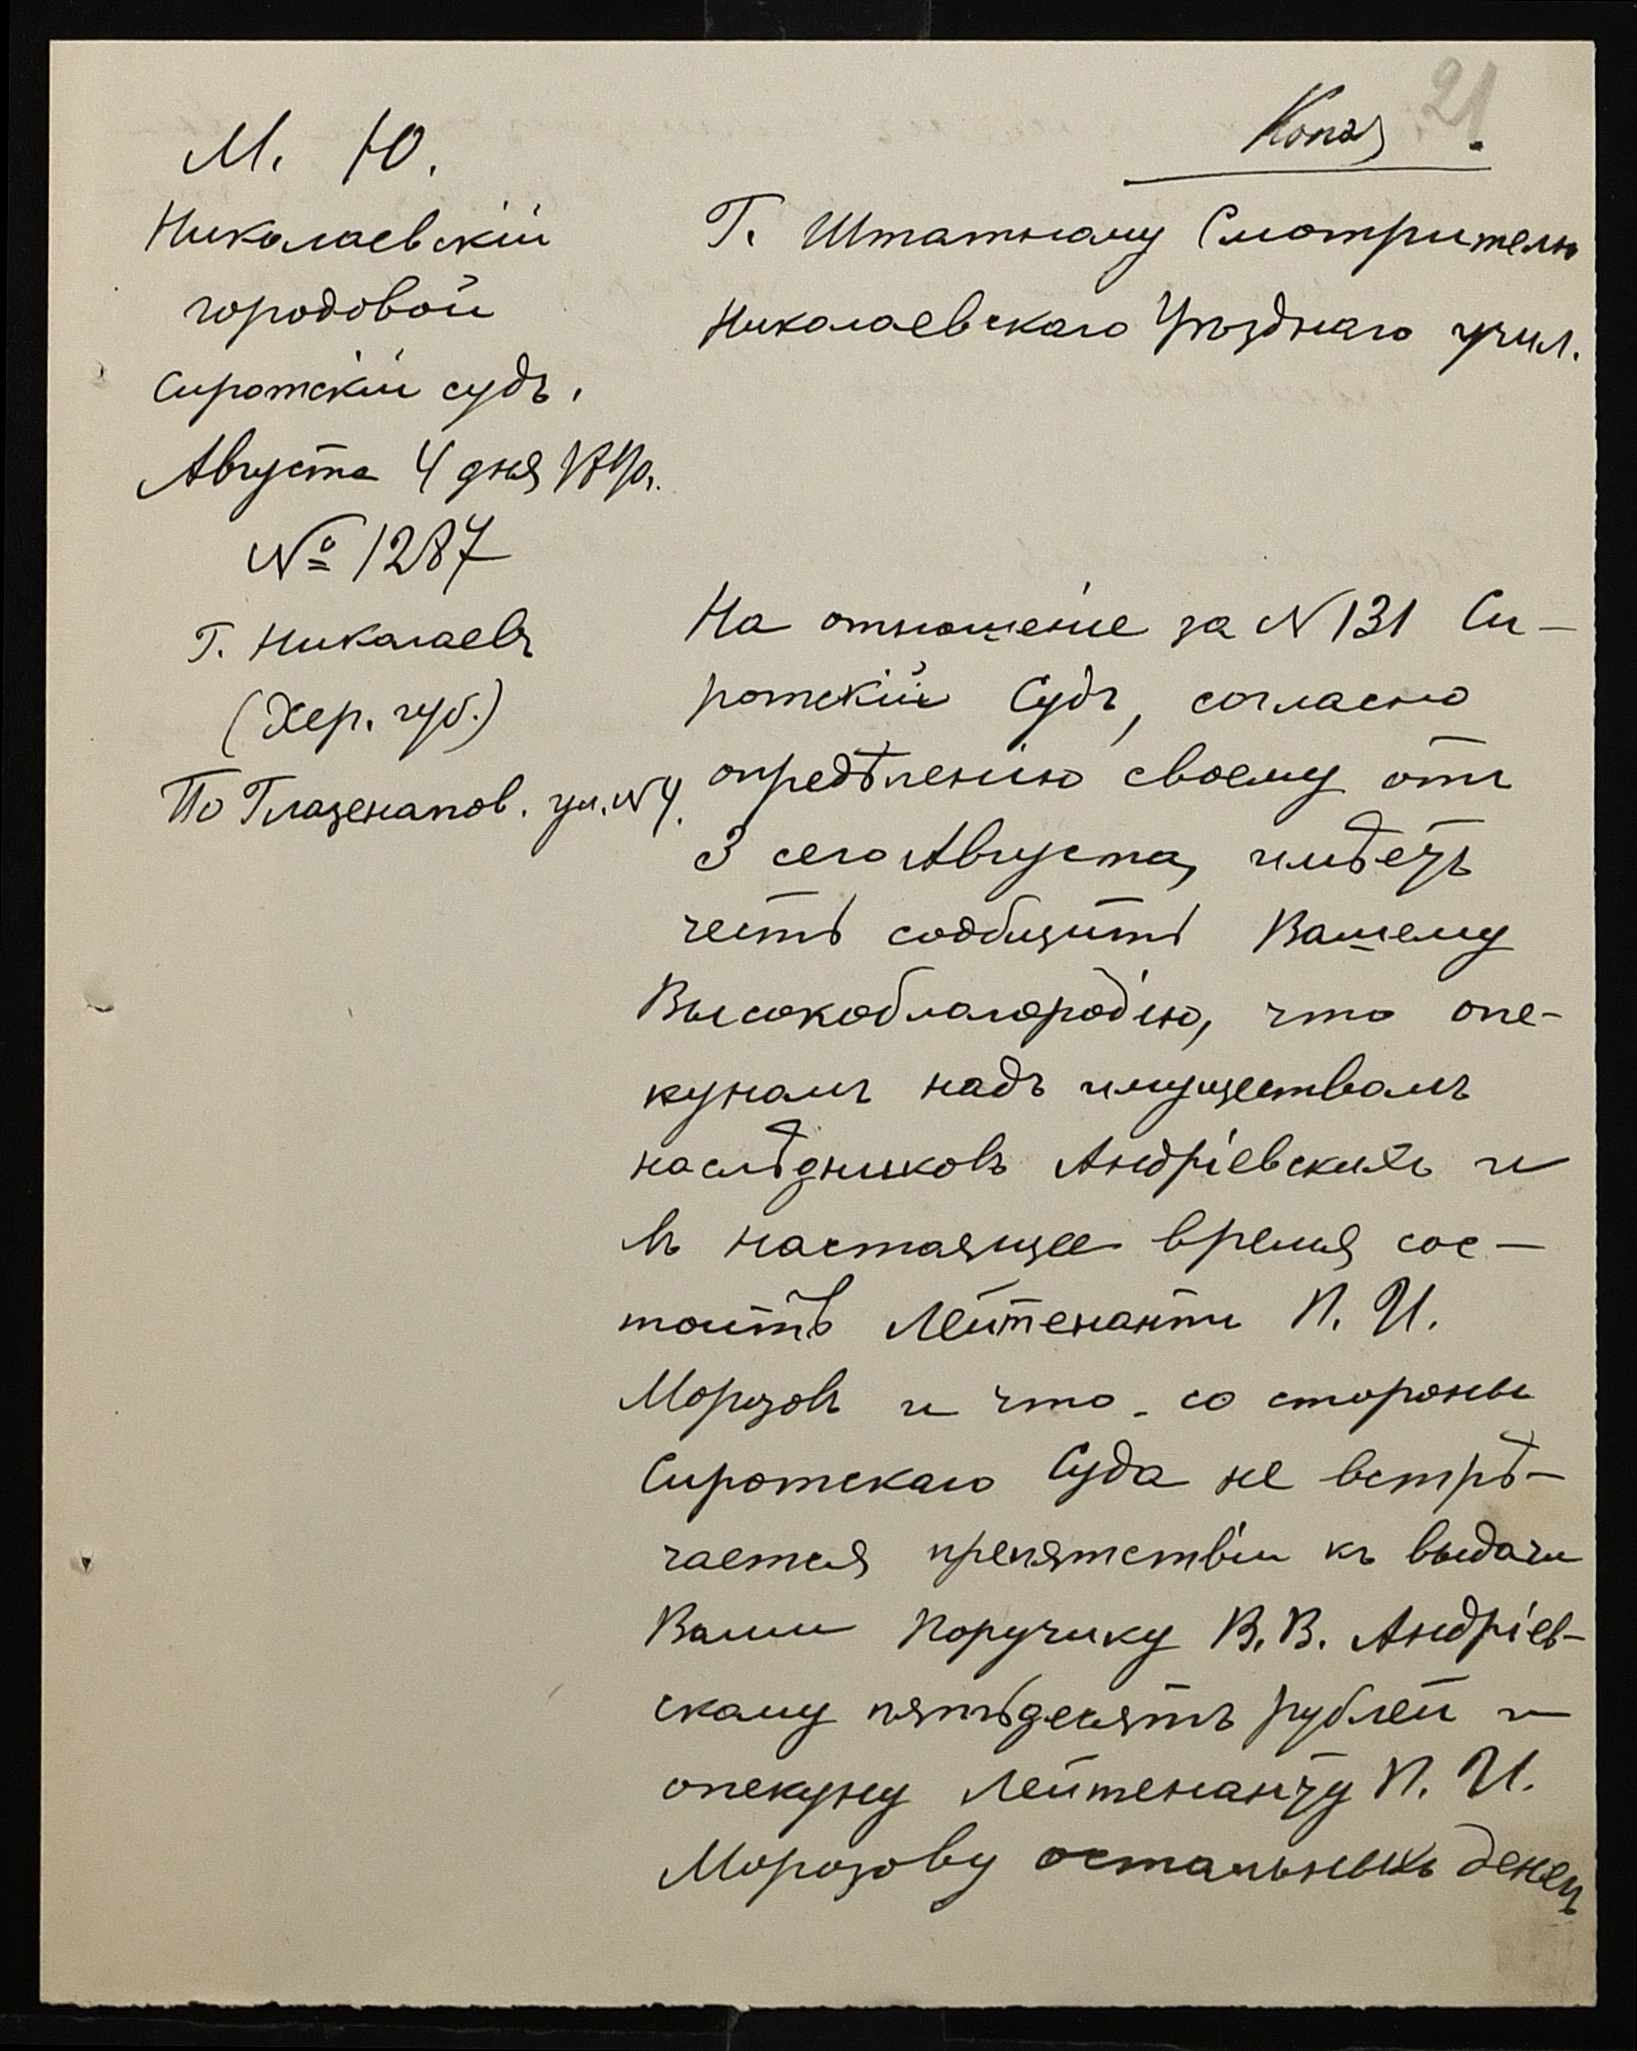 21
Копія.
М. Ю.
Николаевскій
городовой
Сиротскій судъ.
Августа 4 дня
№ 1287
Г. Николаевъ
(Хер. губ.)
По Глазенапов. ул. N 4.
Г. Штатному Смотрителю
Николаевскаго Уѣзднаго учил.
На отношеніе за N 131 Си-
ротскій Судъ, согласно
опредѣленію своему отъ
3 сего Августа, имѣетъ
честь сообщить Вашему
Высокоблагородію, что опе-
куномъ надъ имуществомъ
наслѣдниковъ Андріевскихъ и
въ настоящее время сос-
тоитъ Лейтенантъ П. И.
Морозовъ и что со стороны
Сиротскаго Суда не встрѣ-
чается препятствій къ выдачи
Вами Поручику В. В. Андріев-
скому пятьдесятъ рублей и
опекуну Лейтенанту П. И.
Морозову остальныхъ денегъ